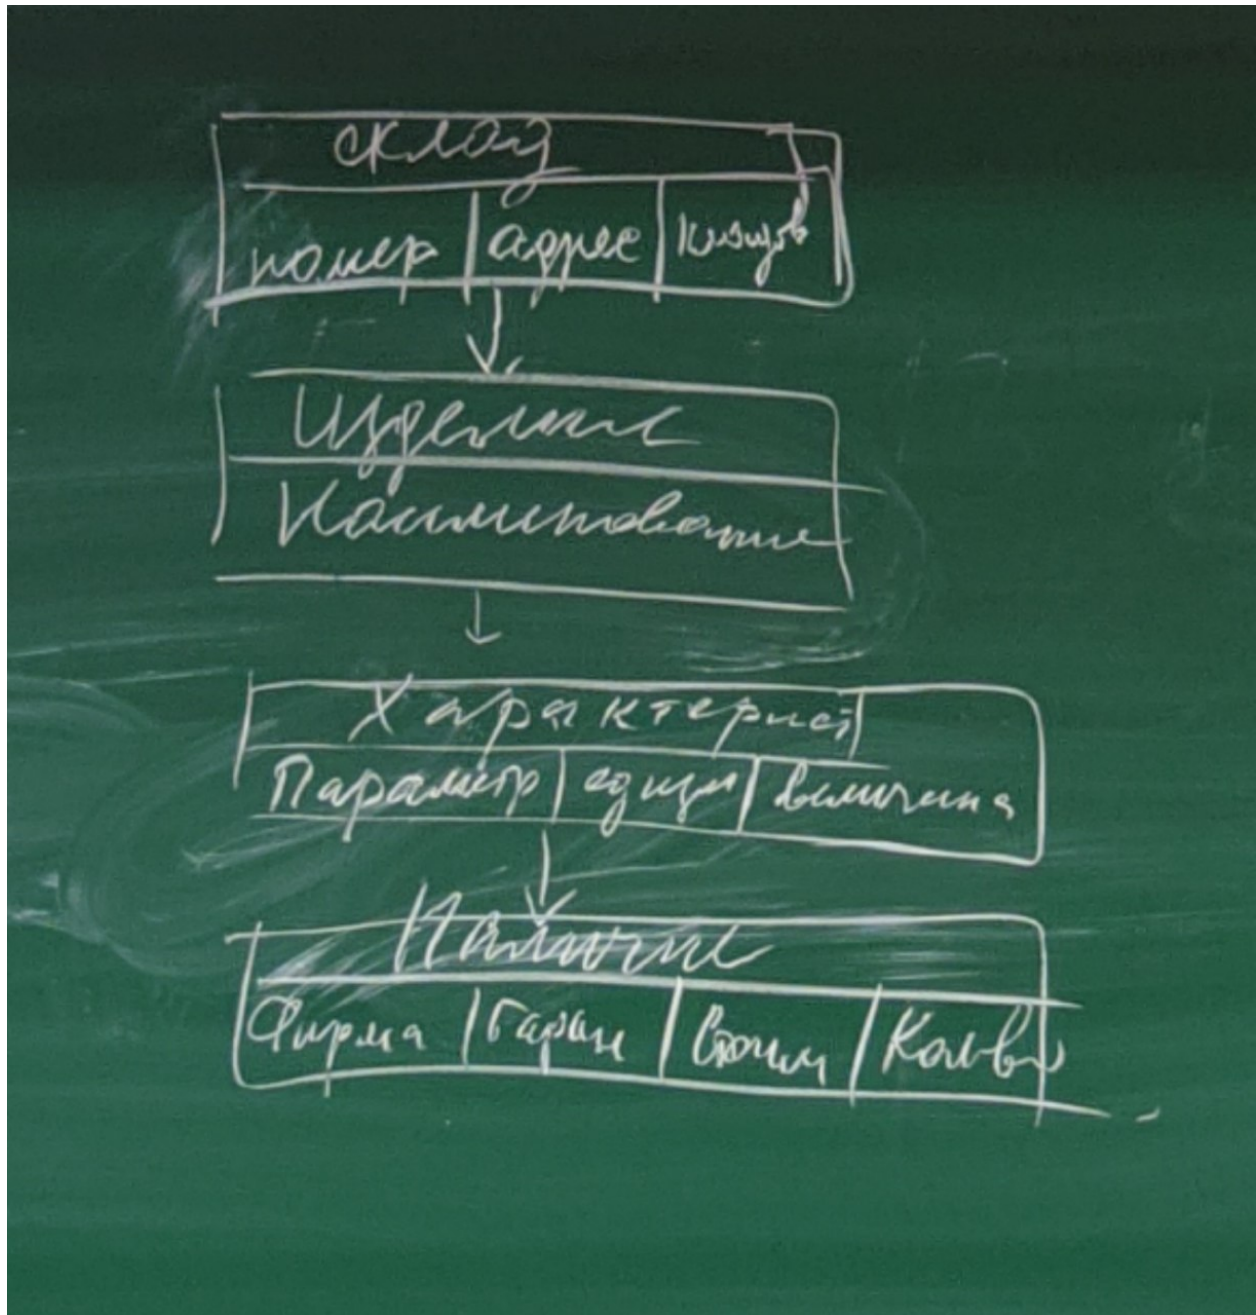 склад
номер адрес
Изделие
Наименование
Характерист
Параметр един величина
Наличие
Фирма Гаран Стоим Кол-во